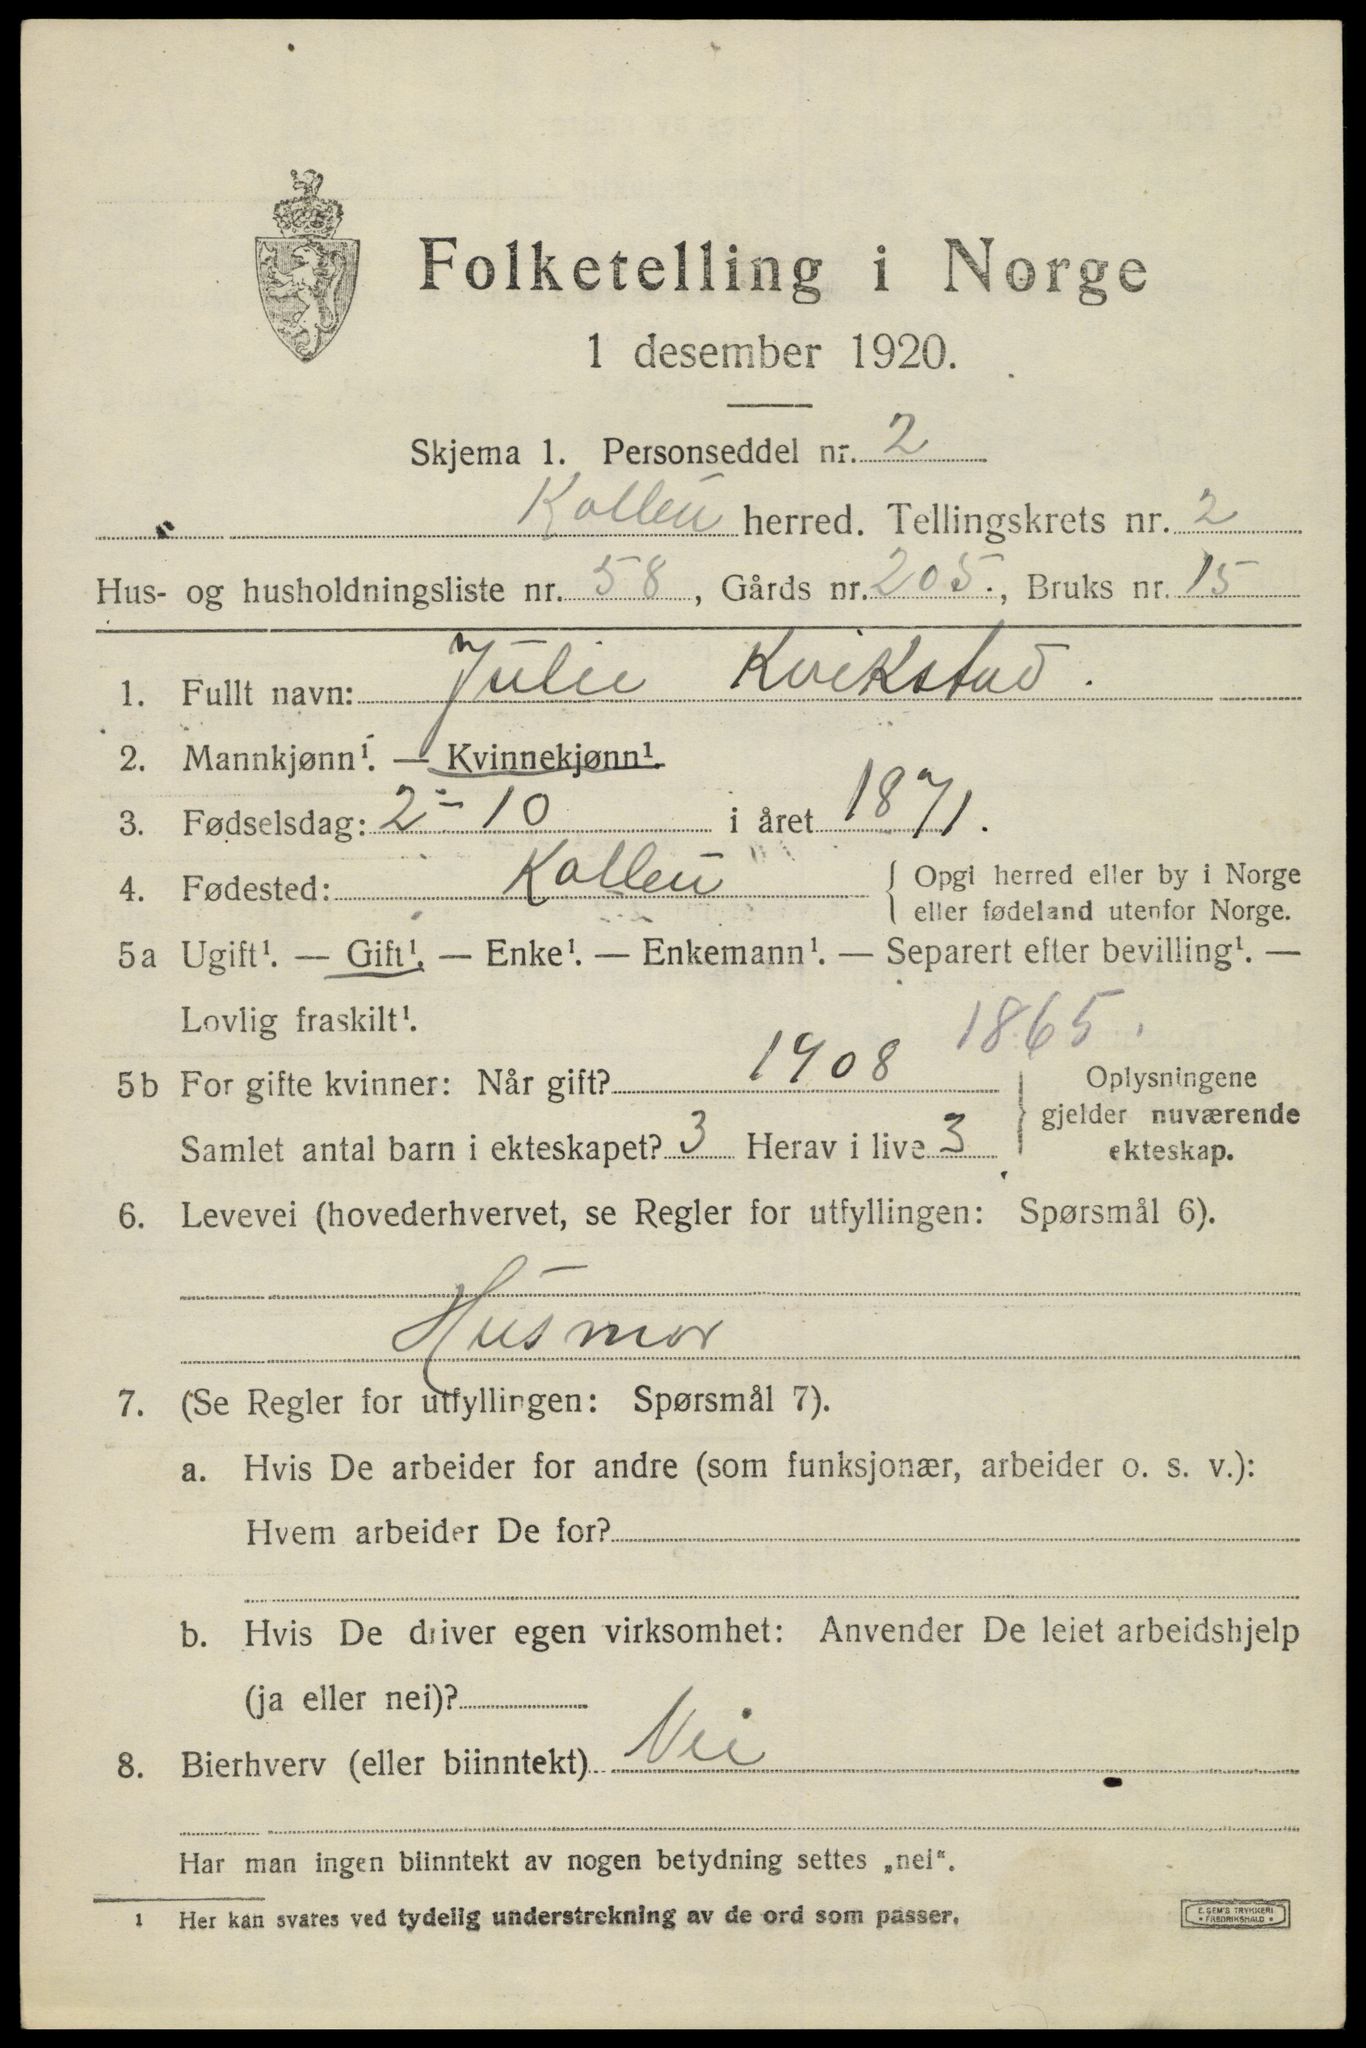 Folketelling i Norge
1 desember 1920.
Skjema 1. Personseddel nr. 2
Kolbu herred. Tellingskrets nr. 2
Hus- og husholdningsliste nr. 58, Gårds nr. 205., Bruks nr. 15
1. Fullt navn: Julie Kvikstad.
2. Mannkjønn¹. — Kvinnekjønn¹.
3. Fødselsdag: 2-10 i året 1871.
4. Fødested: Kolbu { Opgi herred eller by i Norge
eller fødeland utenfor Norge.
5a Ugift¹. — Gift¹. — Enke¹. — Enkemann¹. — Separert efter bevilling¹. —
Lovlig fraskilt¹.
1865.
5b For gifte kvinner: Når gift? 1908
Samlet antal barn i ekteskapet? 3 Herav i live 3
} Oplysningene
gjelder nuværende
ekteskap.
6. Levevei (hovederhvervet, se Regler for utfyllingen: Spørsmål 6).
Husmor
7. (Se Regler for utfyllingen: Spørsmål 7).
a. Hvis De arbeider for andre (som funksjonær, arbeider o. s. v.):
Hvem arbeider De for?
b. Hvis De driver egen virksomhet: Anvender De leiet arbeidshjelp
(ja eller nei)?
8. Bierhverv (eller biinntekt) Nei
Har man ingen biinntekt av nogen betydning settes „nei“.
1 Her kan svares ved tydelig understrekning av de ord som passer.
E. SEM'S TRYKKERI
* FREDRIKSHALD *